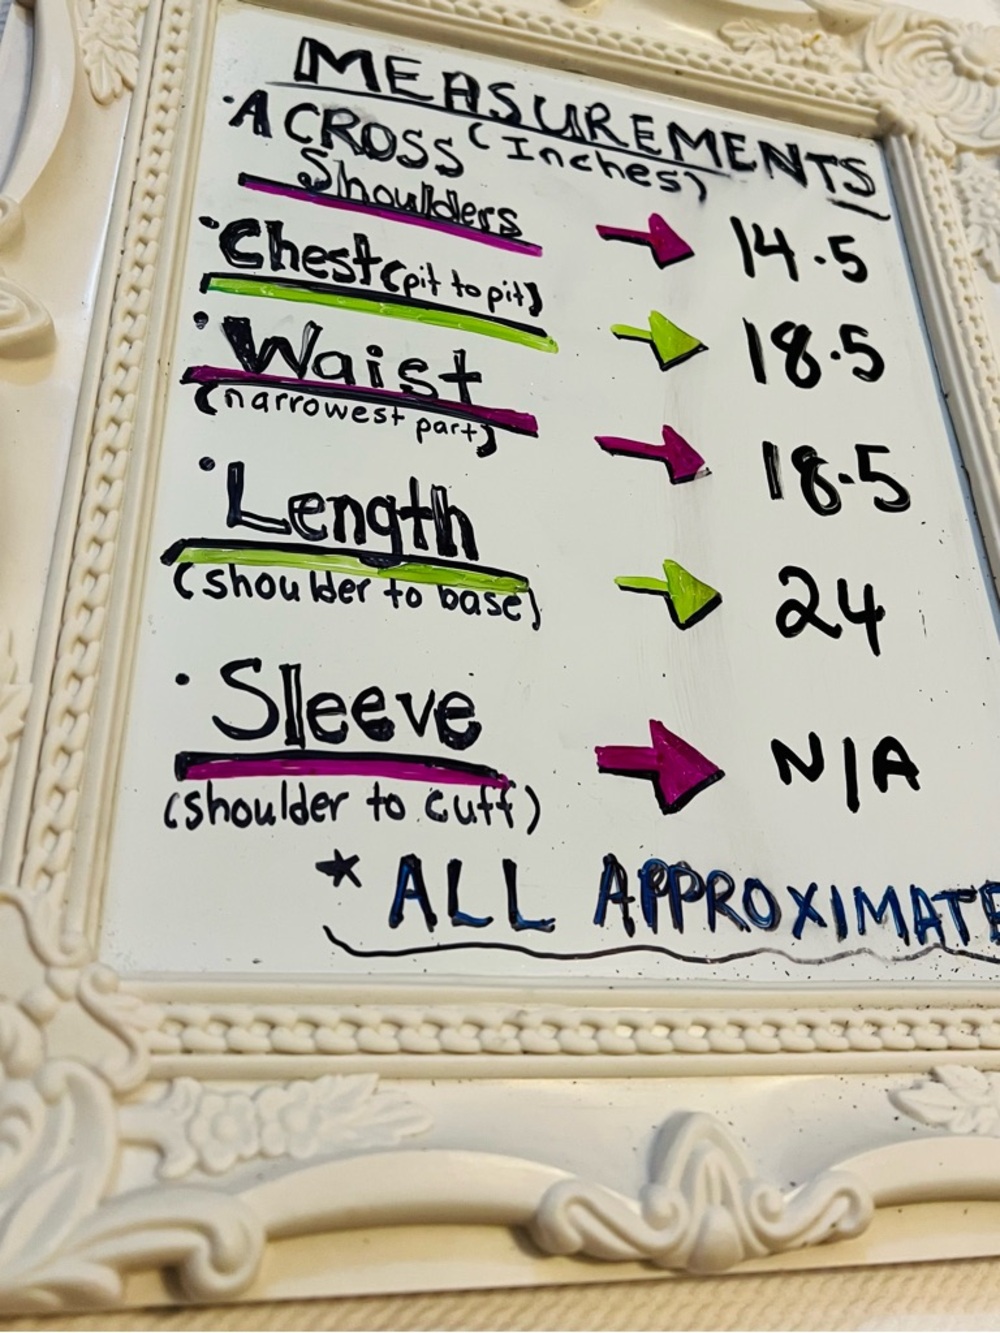 MEASUREMENTS
(Inches)
• ACROSS
Shoulders → 14.5
• Chest (pit to pit) → 18.5
• Waist → 18.5
(narrowest part)
• Length → 24
(shoulder to base)
• Sleeve → N/A
(shoulder to cuff)
* ALL APPROXIMATE